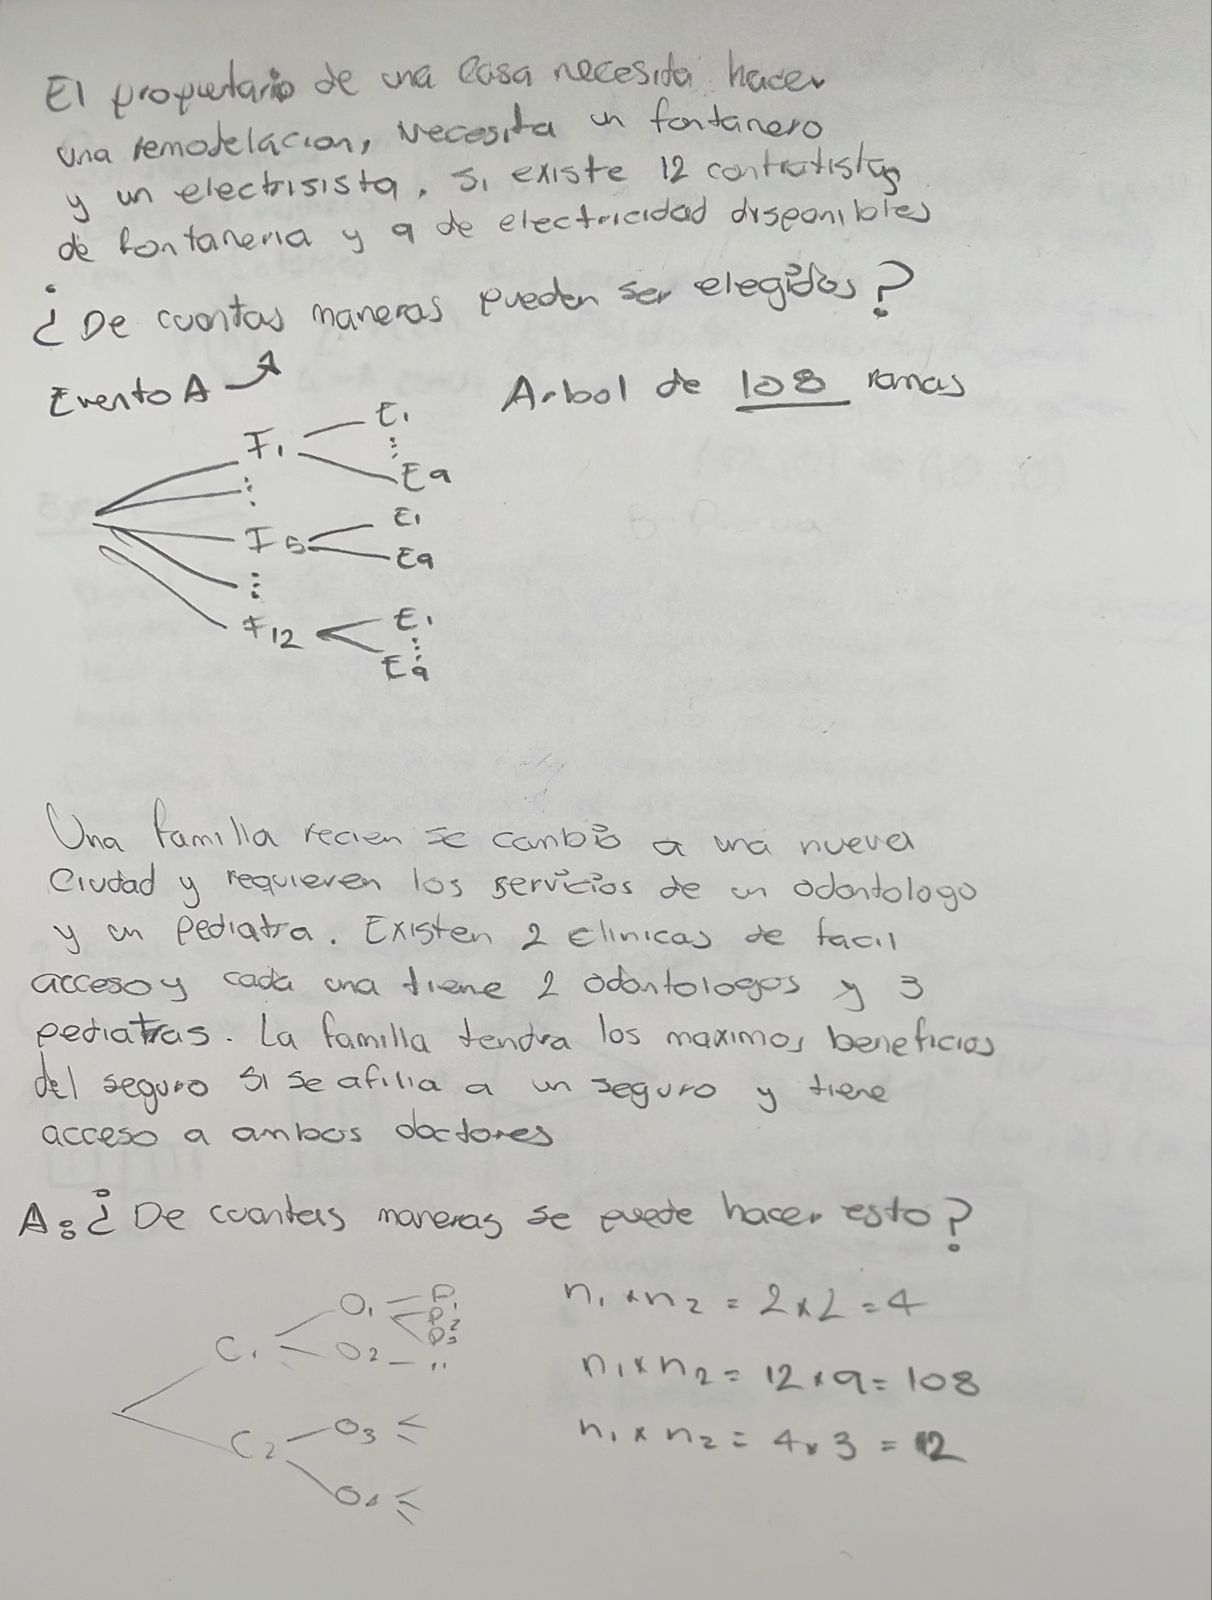 El propietario de una casa necesita hacer
una remodelacion, necesita un fontanero
y un electrisista. Si existe 12 contratistas
de fontaneria y 9 de electricidad disponibles
¿De cuantas maneras pueden ser elegidos?
Evento A
Arbol de 108 ramas
F1
E1
⋮
E9
⋮
F5
E1
E9
⋮
F12
E1
⋮
E9
Una familia recien se cambio a una nueva
Ciudad y requieren los servicios de un odontologo
y un Pediatra. Existen 2 clinicas de facil
acceso y cada una tiene 2 odontologos y 3
pediatras. La familia tendra los maximos beneficios
del seguro si se afilia a un seguro y tiene
acceso a ambos doctores
A: ¿De cuantas maneras se puede hacer esto?
C1
O1
P1
P2
P3
O2 "
C2
O3
O4
n1 x n2 = 2 x 2 = 4
n1 x n2 = 12 x 9 = 108
n1 x n2 = 4 x 3 = 12